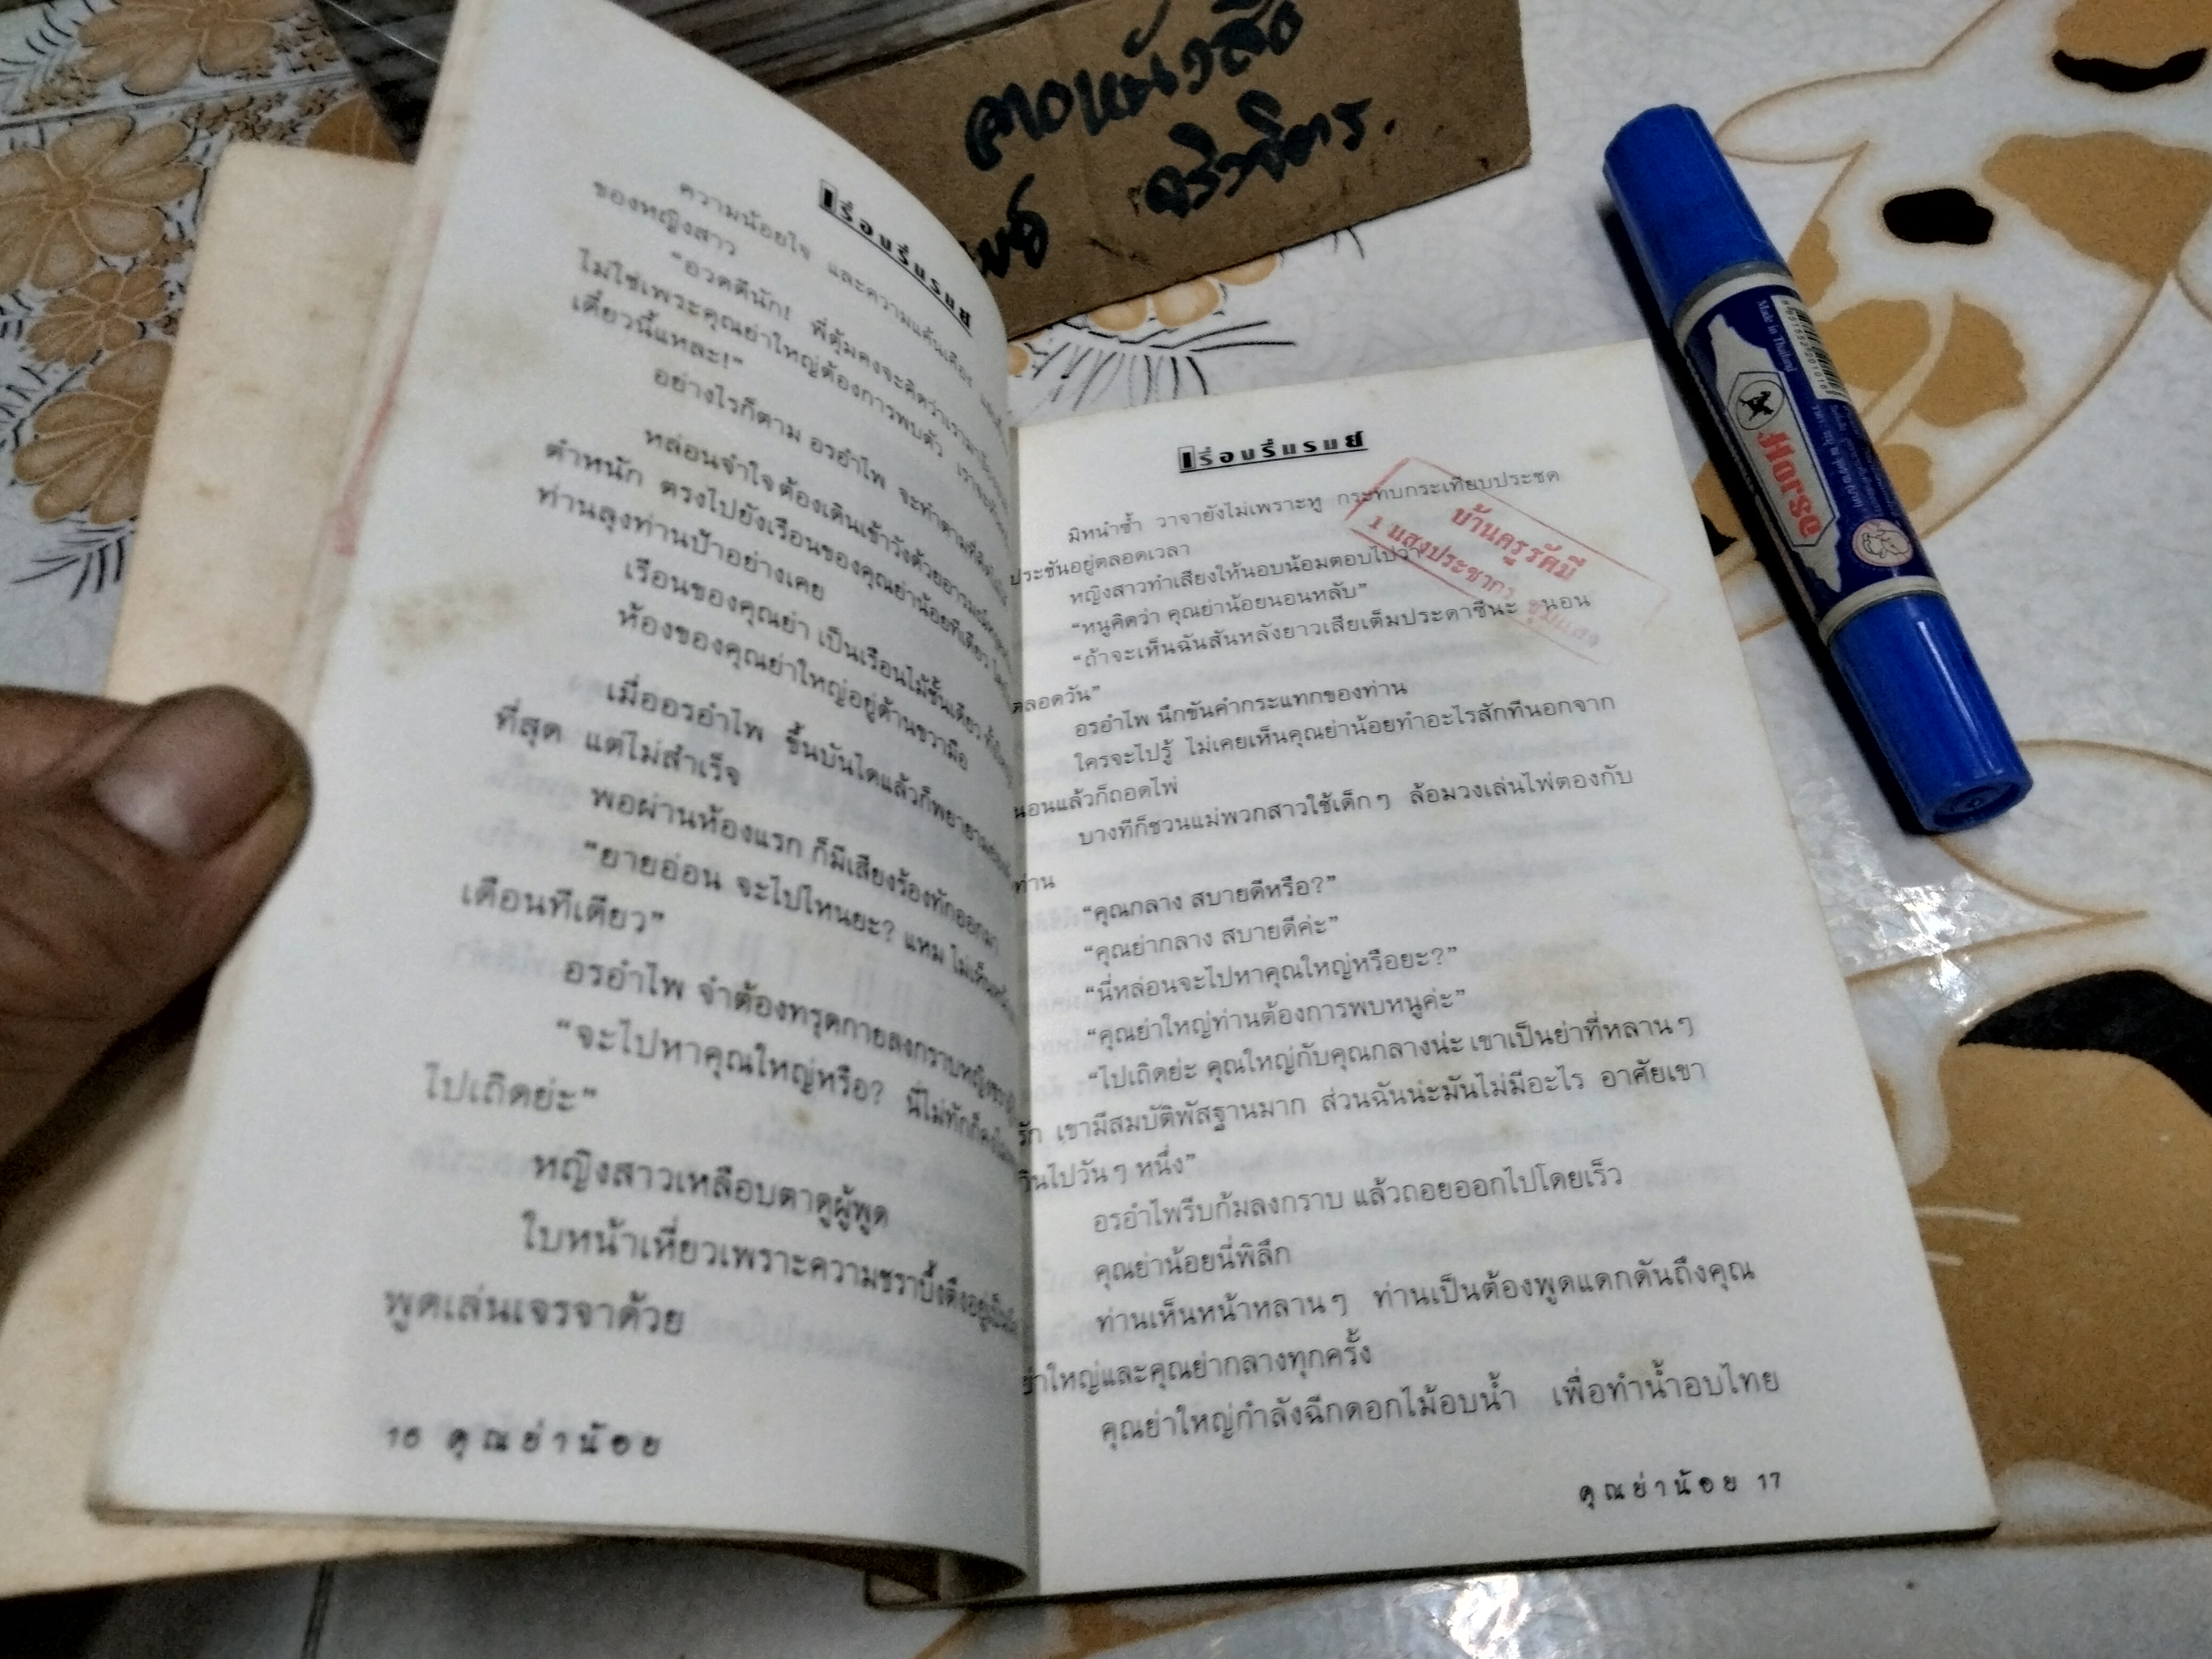 เรื่อนรื่นรมย์
ความน้อยใจ และความแค้นเคือง
ของหญิงสาว
“อวดดีนัก! พี่ตุ้มคงจะคิดว่าเรามา
ไม่ใช่เพระคุณย่าใหญ่ต้องการพบตัว เราจะ
เดี๋ยวนี้แหละ!”
อย่างไรก็ตาม อรอำไพ จะทำตามที่คิดไม่ได้
หล่อนจำใจต้องเดินเข้าวังด้วยอารมณ์
ตำหนัก ตรงไปยังเรือนของคุณย่าน้อยทีเดียว
ท่านลุงท่านป้าอย่างเคย
เรือนของคุณย่า เป็นเรือนไม้ชั้นเดียว
ห้องของคุณย่าใหญ่อยู่ด้านขวามือ
เมื่ออรอำไพ ขึ้นบันไดแล้วก็พยายาม
ที่สุด แต่ไม่สำเร็จ
พอผ่านห้องแรก ก็มีเสียงร้องทักออกมา
“ยายอ่อน จะไปไหนยะ? แหม ไม่เห็น
เดือนทีเดียว”
อรอำไพ จำต้องทรุดกายลงกราบหญิงชรา
“จะไปหาคุณใหญ่หรือ? นี่ไม่ทักก็
ไปเถิดย่ะ”
หญิงสาวเหลือบตาดูผู้พูด
ใบหน้าเหี่ยวเพราะความชราบึ้งตึงอยู่เป็น
พูดเล่นเจรจาด้วย
16 คุณย่าน้อย
เรื่อนรื่นรมย์
มิหนำซ้ำ วาจายังไม่เพราะหู กระทบกระเทียบประชด
ประชันอยู่ตลอดเวลา
หญิงสาวทำเสียงให้นอบน้อมตอบไปว่า
“หนูคิดว่า คุณย่าน้อยนอนหลับ”
“ถ้าจะเห็นฉันสันหลังยาวเสียเต็มประดาซีนะ นอน
ตลอดวัน”
อรอำไพ นึกขันคำกระแทกของท่าน
ใครจะไปรู้ ไม่เคยเห็นคุณย่าน้อยทำอะไรสักทีนอกจาก
นอนแล้วก็ถอดไพ่
บางทีก็ชวนแม่พวกสาวใช้เด็กๆ ล้อมวงเล่นไพ่ตองกับ
ท่าน
“คุณกลาง สบายดีหรือ?”
“คุณย่ากลาง สบายดีค่ะ”
“นี่หล่อนจะไปหาคุณใหญ่หรือยะ?”
“คุณย่าใหญ่ท่านต้องการพบหนูค่ะ”
“ไปเถิดย่ะ คุณใหญ่กับคุณกลางน่ะ เขาเป็นย่าที่หลานๆ
รัก เขามีสมบัติพัสฐานมาก ส่วนฉันน่ะมันไม่มีอะไร อาศัยเขา
กินไปวันๆ หนึ่ง”
อรอำไพรีบก้มลงกราบ แล้วถอยออกไปโดยเร็ว
คุณย่าน้อยนี่พิลึก
ท่านเห็นหน้าหลานๆ ท่านเป็นต้องพูดแดกดันถึงคุณ
ย่าใหญ่และคุณย่ากลางทุกครั้ง
คุณย่าใหญ่กำลังฉีกดอกไม้อบน้ำ เพื่อทำน้ำอบไทย
คุณย่าน้อย 17
บ้านครูรัศมี
1 แสงประชากร ชุมแสง
Made in Thailand
Horse